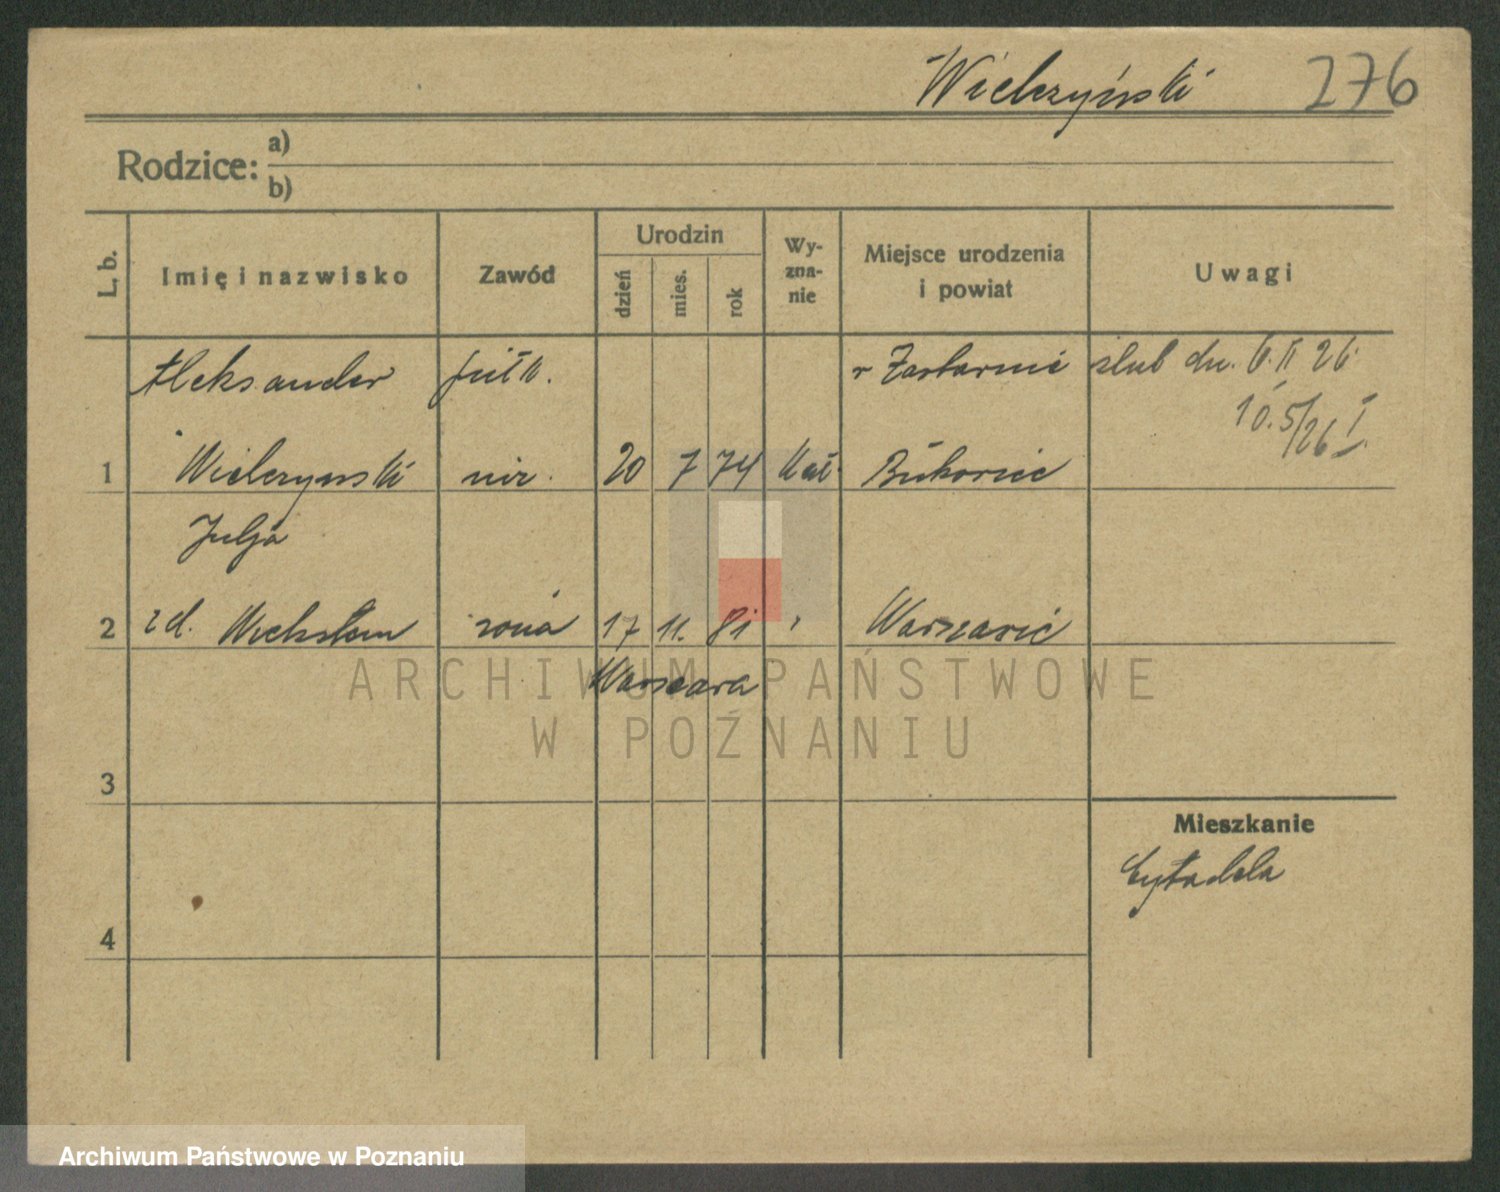 Wielczyński 276
Rodzice: a)
b)
L. b.
Imię i nazwisko
Zawód
Urodzin
dzień
mies.
rok
Wy-
zna-
nie
Miejsce urodzenia
i powiat
Uwagi
Aleksander
ślub dn. 6. II 26.
10.5/26 I
1 Wielczynski inż. 20 7 74 kat.
Julja
2 z d. żona 17 11. 81 "
Warszawa
3
Mieszkanie
Cytadela
4
ARCHIWUM PAŃSTWOWE
W POZNANIU
Archiwum Państwowe w Poznaniu